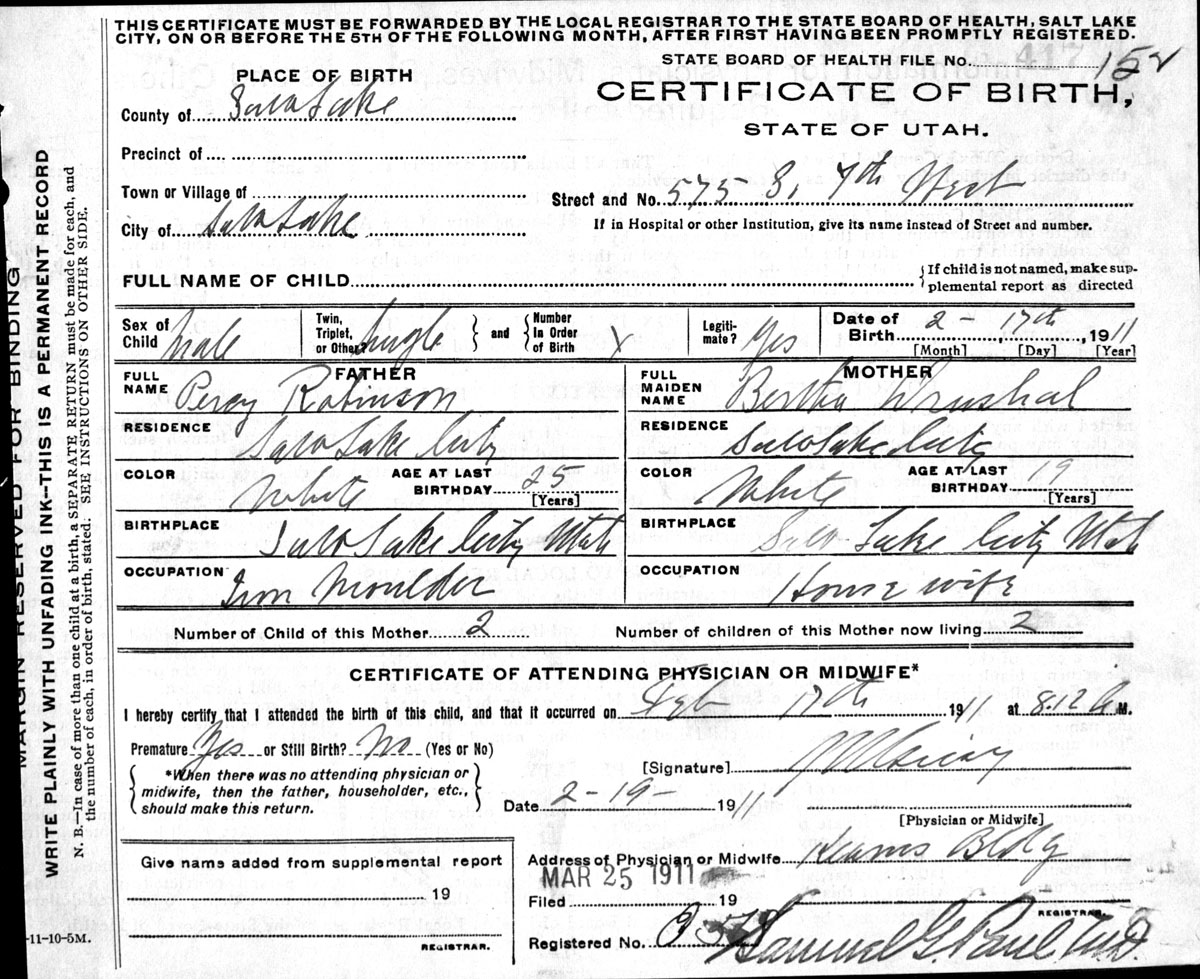 THIS CERTIFICATE MUST BE FORWARDED BY THE LOCAL REGISTRAR TO THE STATE BOARD OF HEALTH, SALT LAKE
CITY, ON OR BEFORE THE 5TH OF THE FOLLOWING MONTH, AFTER FIRST HAVING BEEN PROMPTLY REGISTERED.
STATE BOARD OF HEALTH FILE No.
PLACE OF BIRTH
CERTIFICATE OF BIRTH,
County of Salt Lake
STATE OF UTAH.
Precinct of
Town or Village of
Street and No. 575 S. 7th West
City of Salt Lake
If in Hospital or other Institution, give its name instead of Street and number.
FULL NAME OF CHILD
{If child is not named, make sup-
plemental report as directed
Sex of Child Male
Twin, Triplet, or Other? Single } and { Number In Order of Birth
Legiti-mate? Yes
Date of Birth 2 - 17th, 1911
[Month] [Day] [Year]
FATHER
MOTHER
FULL NAME Percy Robinson
FULL MAIDEN NAME Bertha
RESIDENCE Salt Lake City
RESIDENCE Salt Lake City
COLOR White AGE AT LAST BIRTHDAY 25 [Years]
COLOR White AGE AT LAST BIRTHDAY 19 [Years]
BIRTHPLACE Salt Lake City Utah
BIRTHPLACE Salt Lake City Utah
OCCUPATION Iron Moulder
OCCUPATION House wife
Number of Child of this Mother 2 Number of children of this Mother now living 2
CERTIFICATE OF ATTENDING PHYSICIAN OR MIDWIFE*
I hereby certify that I attended the birth of this child, and that it occurred on Feb 17th 1911 at 8:12 M.
Premature Yes or Still Birth? No (Yes or No)
{*When there was no attending physician or
midwife, then the father, householder, etc.,
should make this return.}
[Signature]
Date 2-19- 1911
[Physician or Midwife]
Give name added from supplemental report
19
REGISTRAR.
Address of Physician or Midwife Kearns Bldg
MAR 25 1911
Filed 19
REGISTRAR.
Registered No. Samuel G. Paul M.D.
-11-10-5M.
MARGIN RESERVED FOR BINDING
WRITE PLAINLY WITH UNFADING INK—THIS IS A PERMANENT RECORD
N. B.—In case of more than one child at a birth, a SEPARATE RETURN must be made for each, and
the number of each, in order of birth, stated. SEE INSTRUCTIONS ON OTHER SIDE.